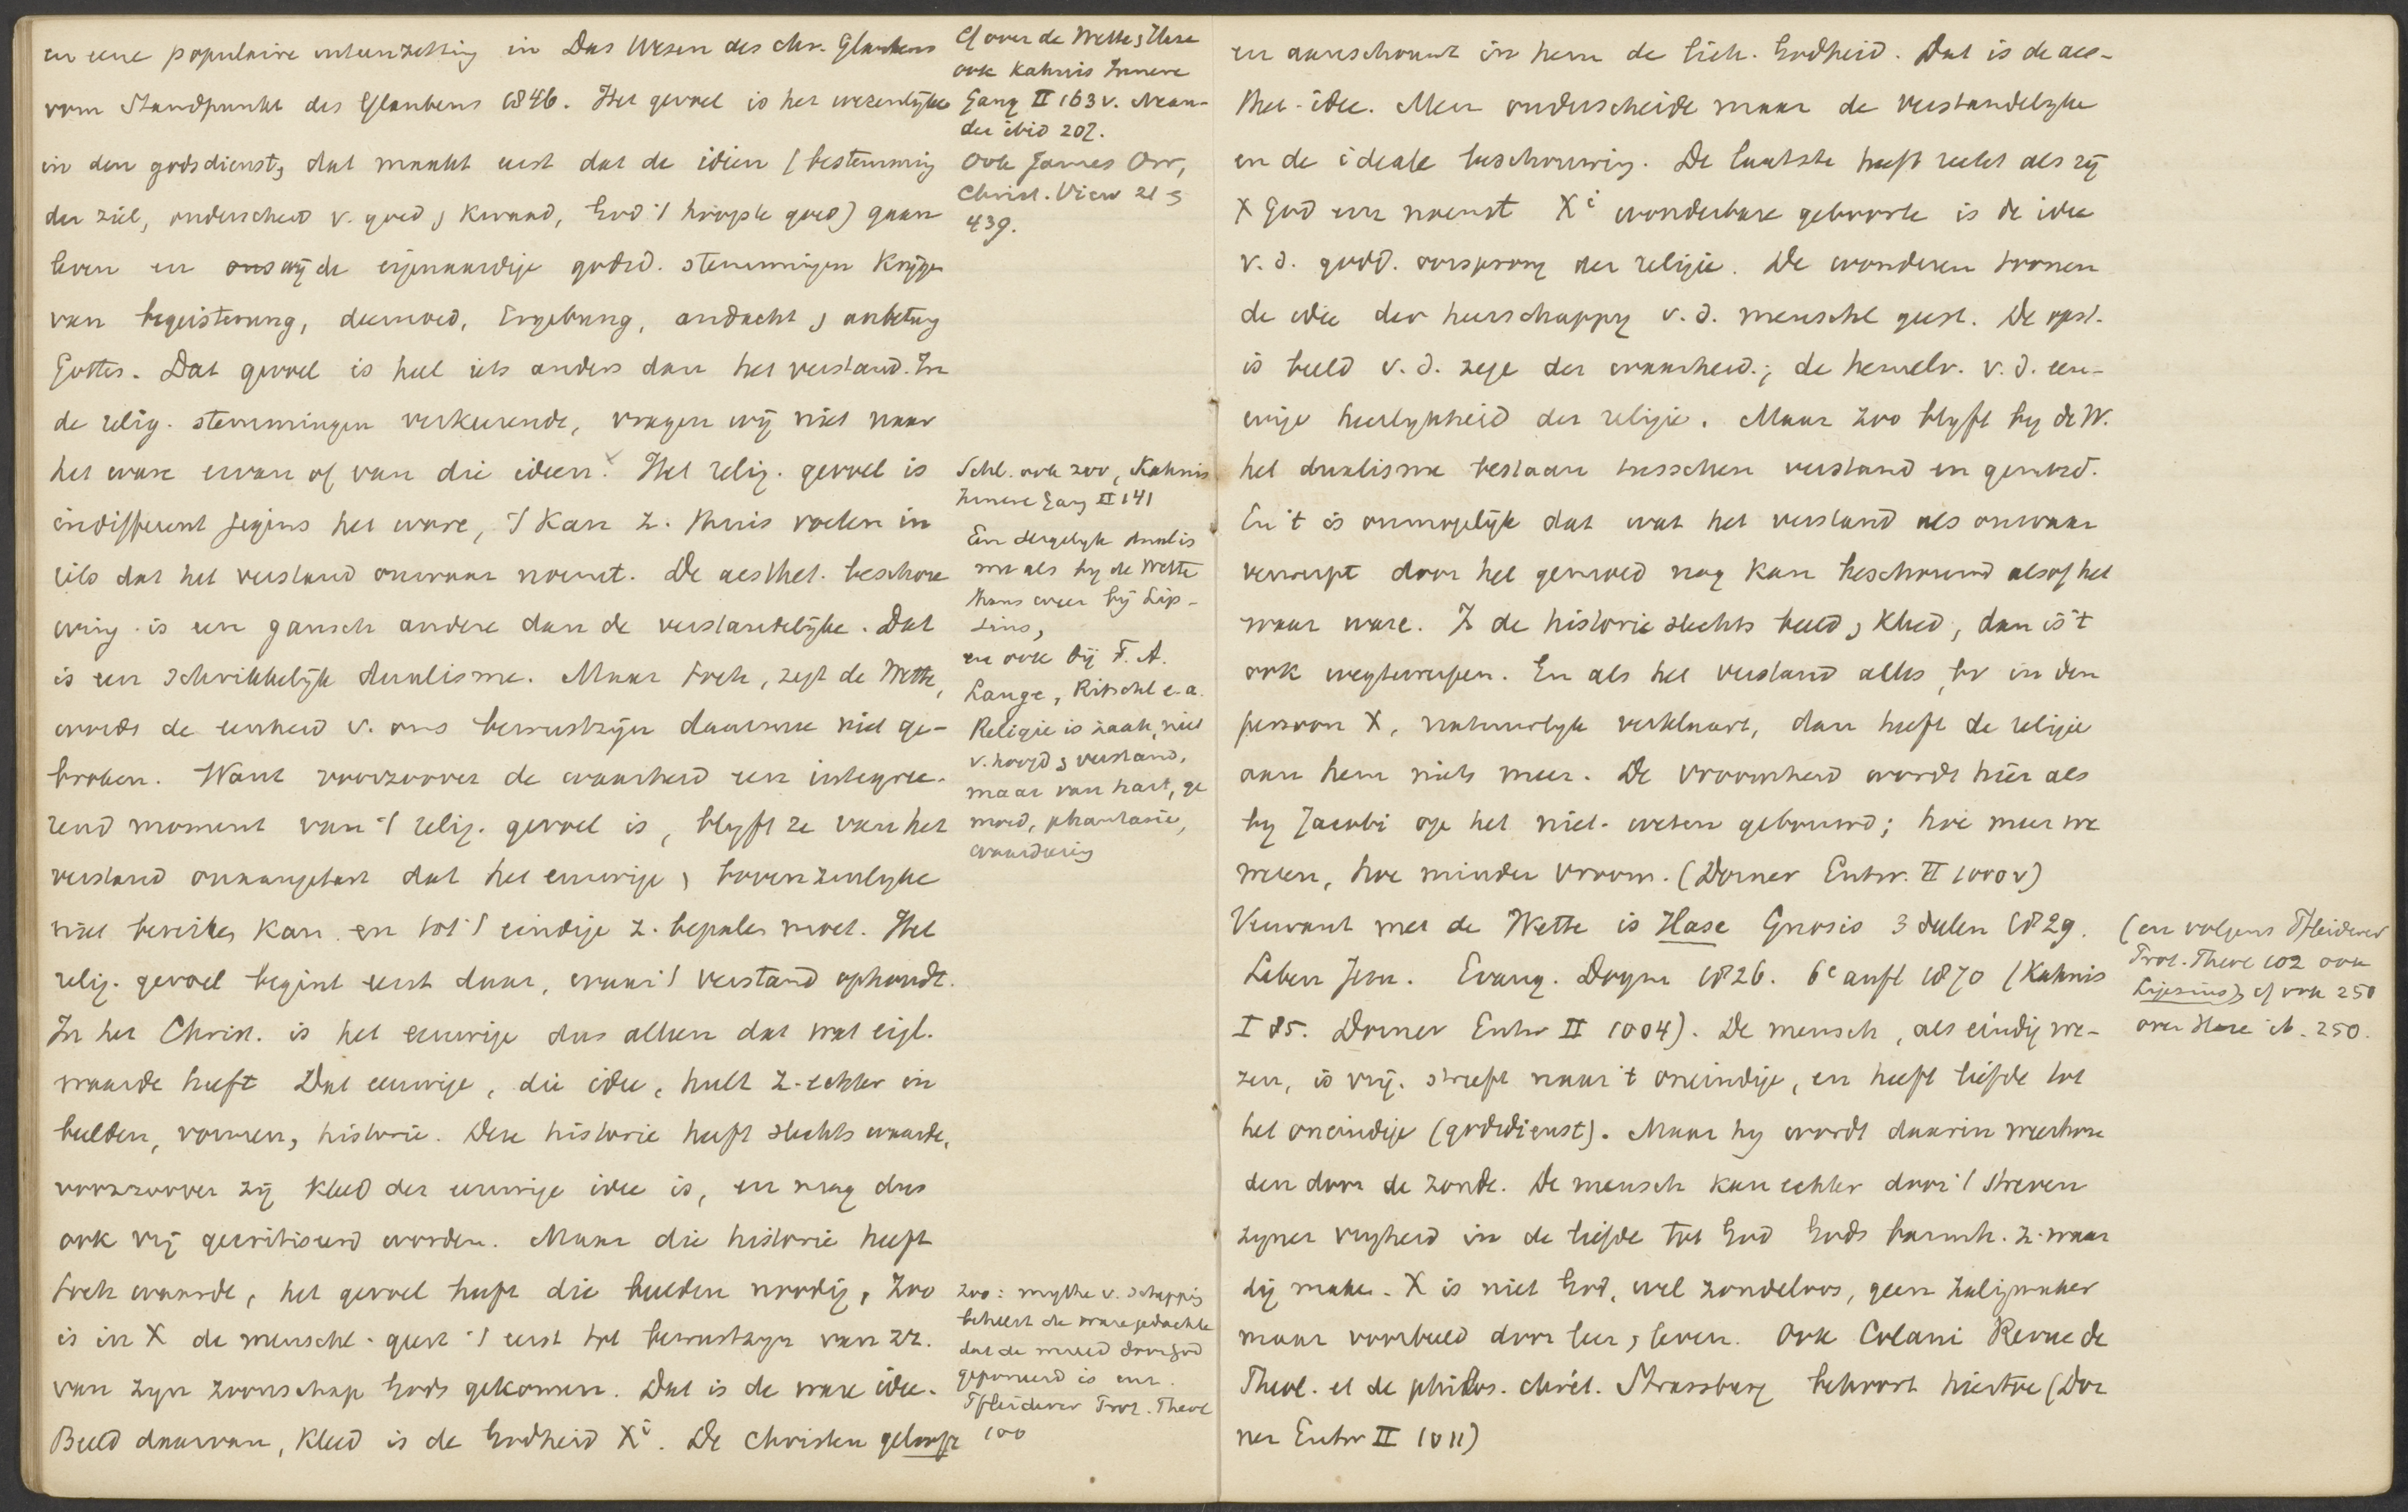 en eene populaire uiteenzetting in Das Wesen des chr. Glaubens
vom Standpunkt des Glaubens 1846. Het gevoel is het wezenlijke
in den godsdienst, dat maakt eerst dat de ideën (bestemming
der ziel, onderscheid v. goed & kwaad, God 't hoogste goed) gaan
leven en wij de eigenaardige godsd. stemmingen krijgen
van begeisterung, deemoed, Ergebung, andacht & anbetung
Gottes. Dat gevoel is heel iets anders dan het verstand. In
de relig. stemmingen verkeerende, vragen wij niet naar
het ware ervan of van die ideen. Het relig. gevoel is
indifferent jegens het ware, 't kan z. thuis voelen in
iets dat het verstand onwaar noemt. De aesthet. beschou
wing is een gansch andere dan de verstandelijke. Dat
is een schrikkelijk dualisme. Maar toch, zegt de Wette,
wordt de eenheid v. ons bewustzijn daarmee niet ge-
broken. Want voorzoover de waarheid een integree-
rend moment van 't relig. gevoel is, blyft ze van het
verstand onaangetast dat het eeuwige & bovenzinlyke
niet bereiken kan en tot 't eindige z. bepalen moet. Het
relig. gevoel begint eerst daar, waar 't verstand ophoudt.
In het Christ. is het eeuwige dus alleen dat wat eigl.
waarde heeft Dat eeuwige, die idee, hult z. echter in
beelden, vormen, historie. Deze historie heeft slechts waarde,
voorzoover zij kleed der eeuwige idee is, en mag dus
ook vrij gecritiseerd worden. Maar die historie heeft
toch waarde, het gevoel heeft die beelden noodig, Zoo
is in X de menschl. geest 't eerst tot bewustzyn van zz.
van zyn zoonschap Gods gekomen. Dat is de ware idee.
Beeld daarvan, kleed is de Godheid Xi. De Christen gelooft
Cf over de Wette & Hase
ook Kahnis Innere
Gang II 163 v. Nean-
der ibid 207.
Ook James Orr,
Christ. View 21 &
439.
Schl. ook zoo, Kahnis
Innere Gang II 141
Een dergelyk dualis
me als by de Wette
thans weer bij Lip-
sius,
en ook bij F. A.
Lange, Ritschl e.a.
Religie is zaak, niet
v. hoofd & verstand,
maar van hart, ge
moed, phantasie,
waardeering
Zoo: mythe v. schepping
behelst de ware gedachte
dat de wereld door God
geponeerd is enz.
Pfleiderer Prot. Theol
100
en aanschouwt in hem de lich. Godheid. Dat is de aes-
thet. idee. Men onderscheide maar de verstandelyke
en de ideale beschouwing. De laatste heeft recht als zij
X God enz noemt Xi wonderbare geboorte is de idee
v. d. godd. oorsprong der religie. De wonderen toonen
de idee der heerschappy v. d. menschl geest. De opst.
is beeld v. d. zege der waarheid; de hemelv. v. d. eeu-
wige heerlykheid der religie. Maar zoo blyft by de W.
het dualisme bestaan tusschen verstand en gemoed.
En 't is onmogelijk dat wat het verstand als onwaar
verwerpt door het gemoed nog kan beschouwd alsof het
waar ware. Is de historie slechts beeld & kleed, dan is 't
ook wegtewerpen. En als het verstand alles, bv in den
persoon X, natuurlyk verklaart, dan heeft de religie
aan hem niets meer. De vroomheid wordt hier als
by Jacobi op het niet-weten gebouwd; hoe meer we
weten, hoe minder vroom. (Dorner Entw. II 1000 v)
Verwant met de Wette is Hase Gnosis 3 deelen 1829.
Leben Jesu. Evang. Dogm 1826. 6e aufl 1870 (Kahnis
I 85. Dorner Entw II 1004). De mensch, als eindig we-
zen, is vrij. streeft naar 't oneindige, en heeft liefde tot
het oneindige (godsdienst). Maar hy wordt daarin weerhou
den door de zonde. De mensch kan echter door 't streven
zyner vryheid in de liefde tot God Gods barmh. z. waar
dig maken. X is niet God, wel zondeloos, geen Zaligmaker
maar voorbeeld door leer & leven. Ook Colani Revue de
Theol. et de philos. chrét. Strassburg behoort hiertoe (Dor
ner Entw II 1011)
(en volgens Pfleiderer
Prot. Theol 102 ook
Lipsius) cf ook 250
over Hase ib. 250.